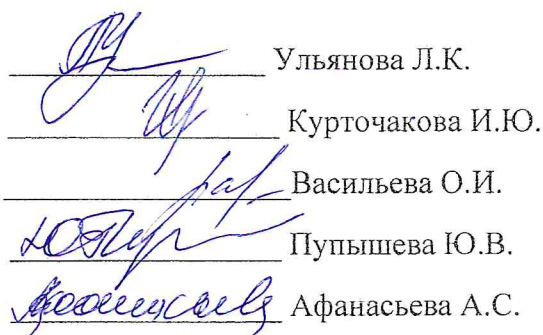 Ульянова Л.К.
Курточакова И.Ю.
Васильева О.И.
Пупышева Ю.В.
Афанасьева А.С.